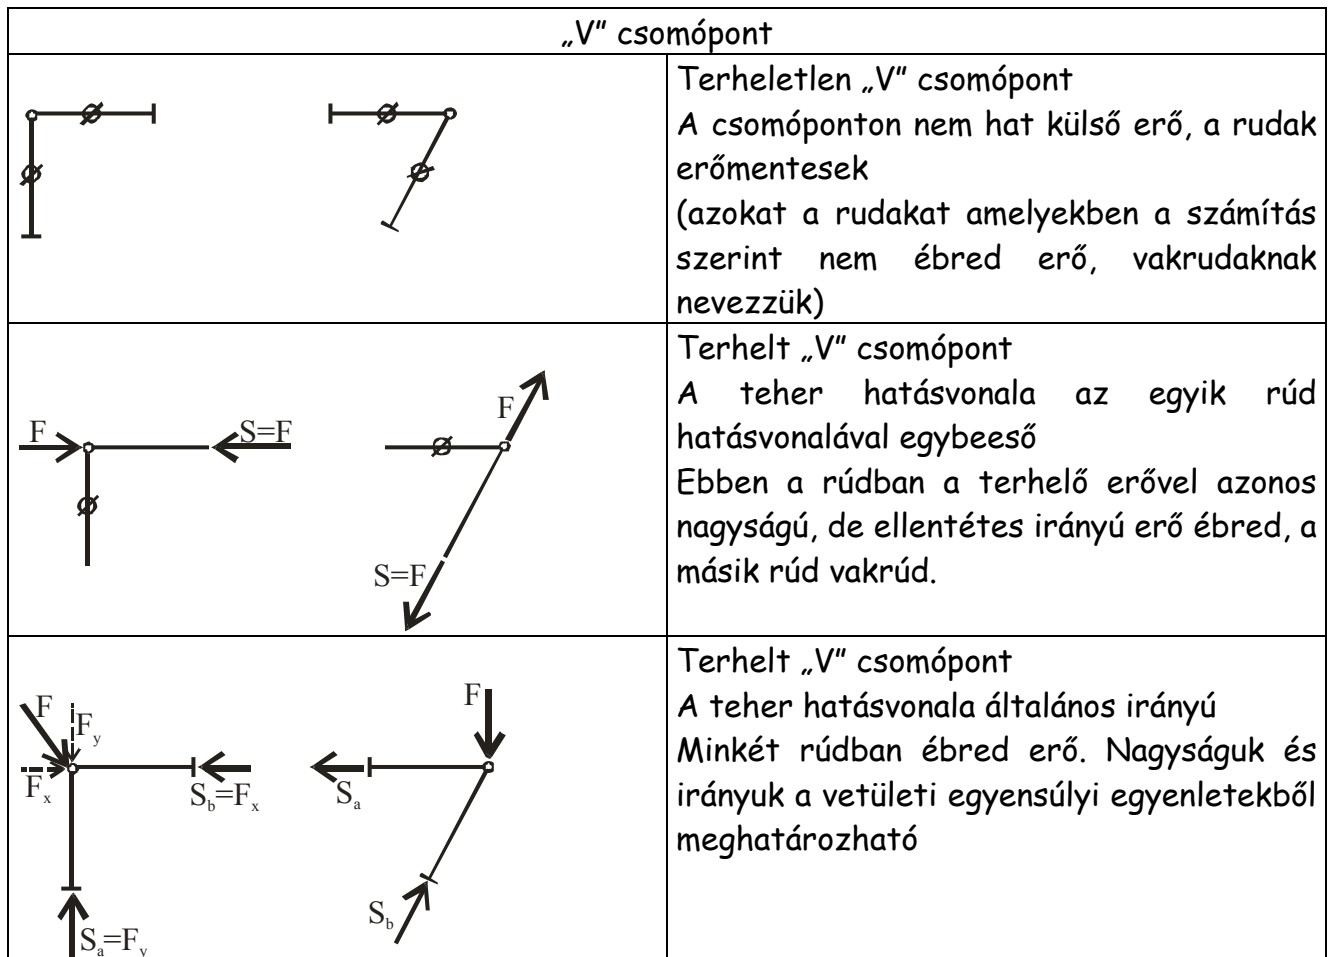 „V” csomópont
Terheletlen „V” csomópont
A csomóponton nem hat külső erő, a rudak
erőmentesek
(azokat a rudakat amelyekben a számítás
szerint nem ébred erő, vakrudaknak
nevezzük)
F
S=F
F
S=F
Terhelt „V” csomópont
A teher hatásvonala az egyik rúd
hatásvonalával egybeeső
Ebben a rúdban a terhelő erővel azonos
nagyságú, de ellentétes irányú erő ébred, a
másik rúd vakrúd.
F
Fy
Fx
Sb=Fx
Sa=Fy
F
Sa
Sb
Terhelt „V” csomópont
A teher hatásvonala általános irányú
Minkét rúdban ébred erő. Nagyságuk és
irányuk a vetületi egyensúlyi egyenletekből
meghatározható